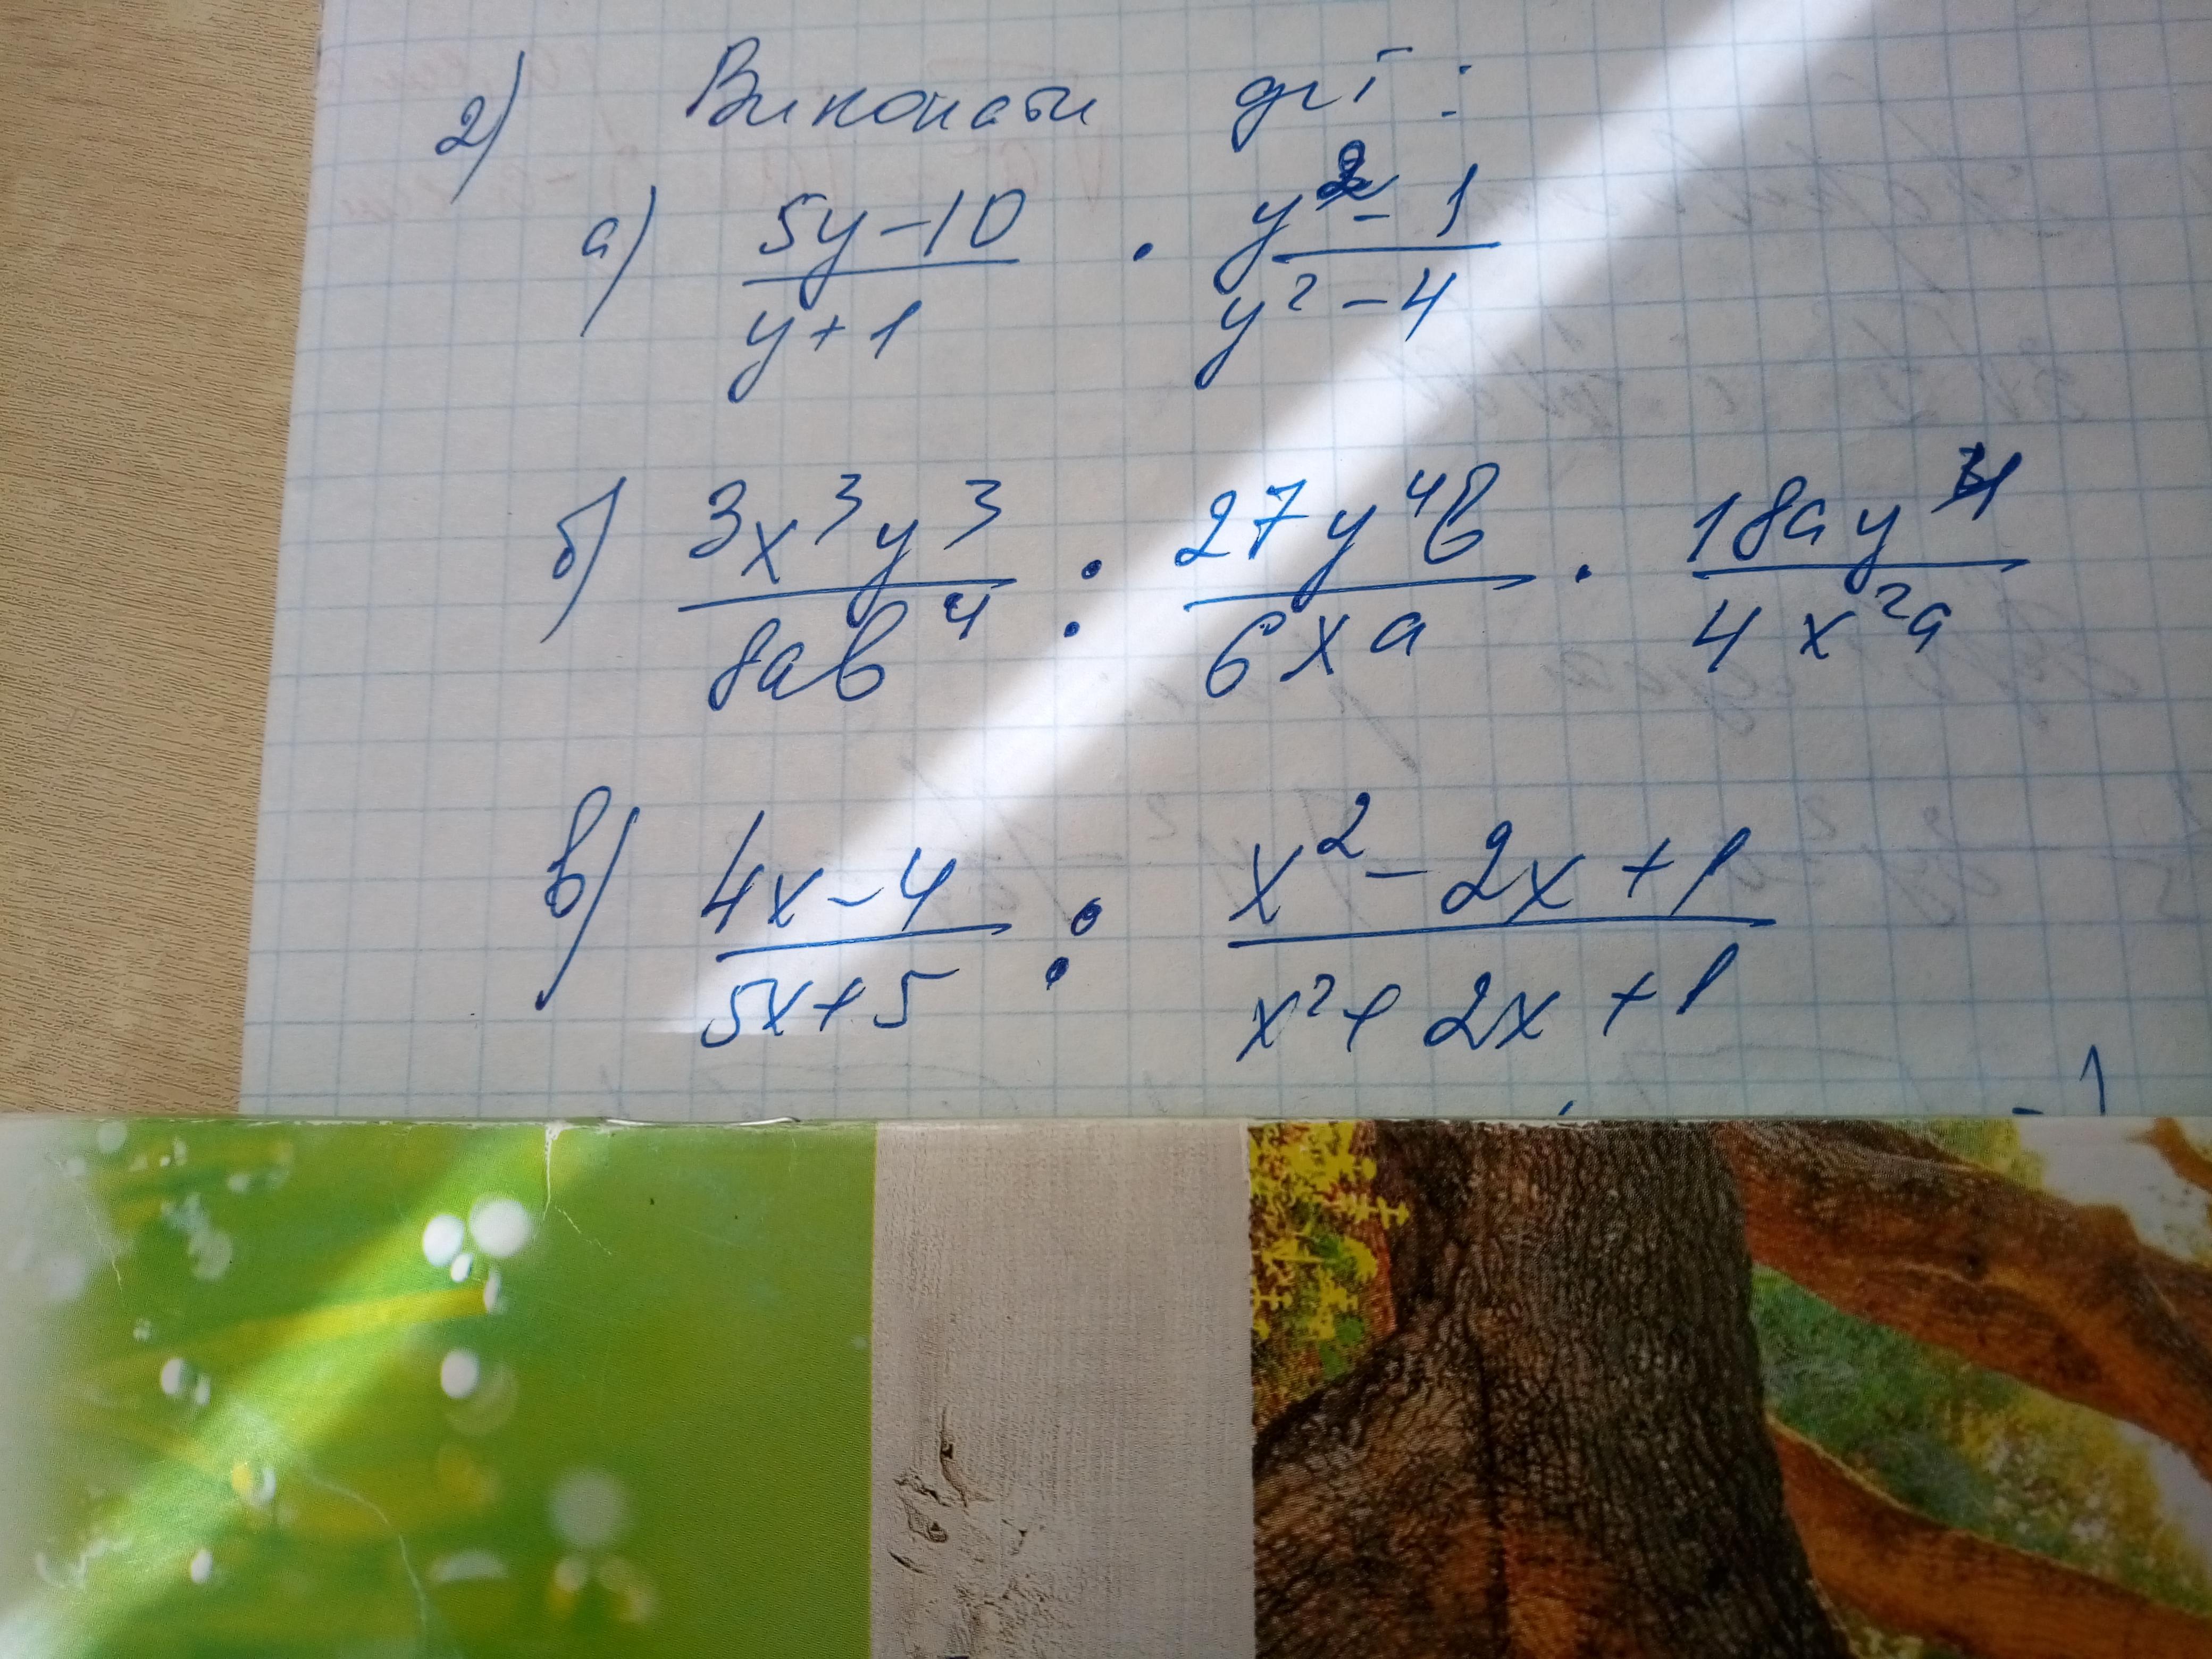 2) Виконати дії:
а) (5y-10)/(y+1) · (y²-1)/(y²-4)
б) (3x³y³)/(8ab⁴) : (27y⁴b)/(6xa) · (18ay⁴)/(4x²a)
в) (4x-4)/(5x+5) : (x²-2x+1)/(x²+2x+1)
-1